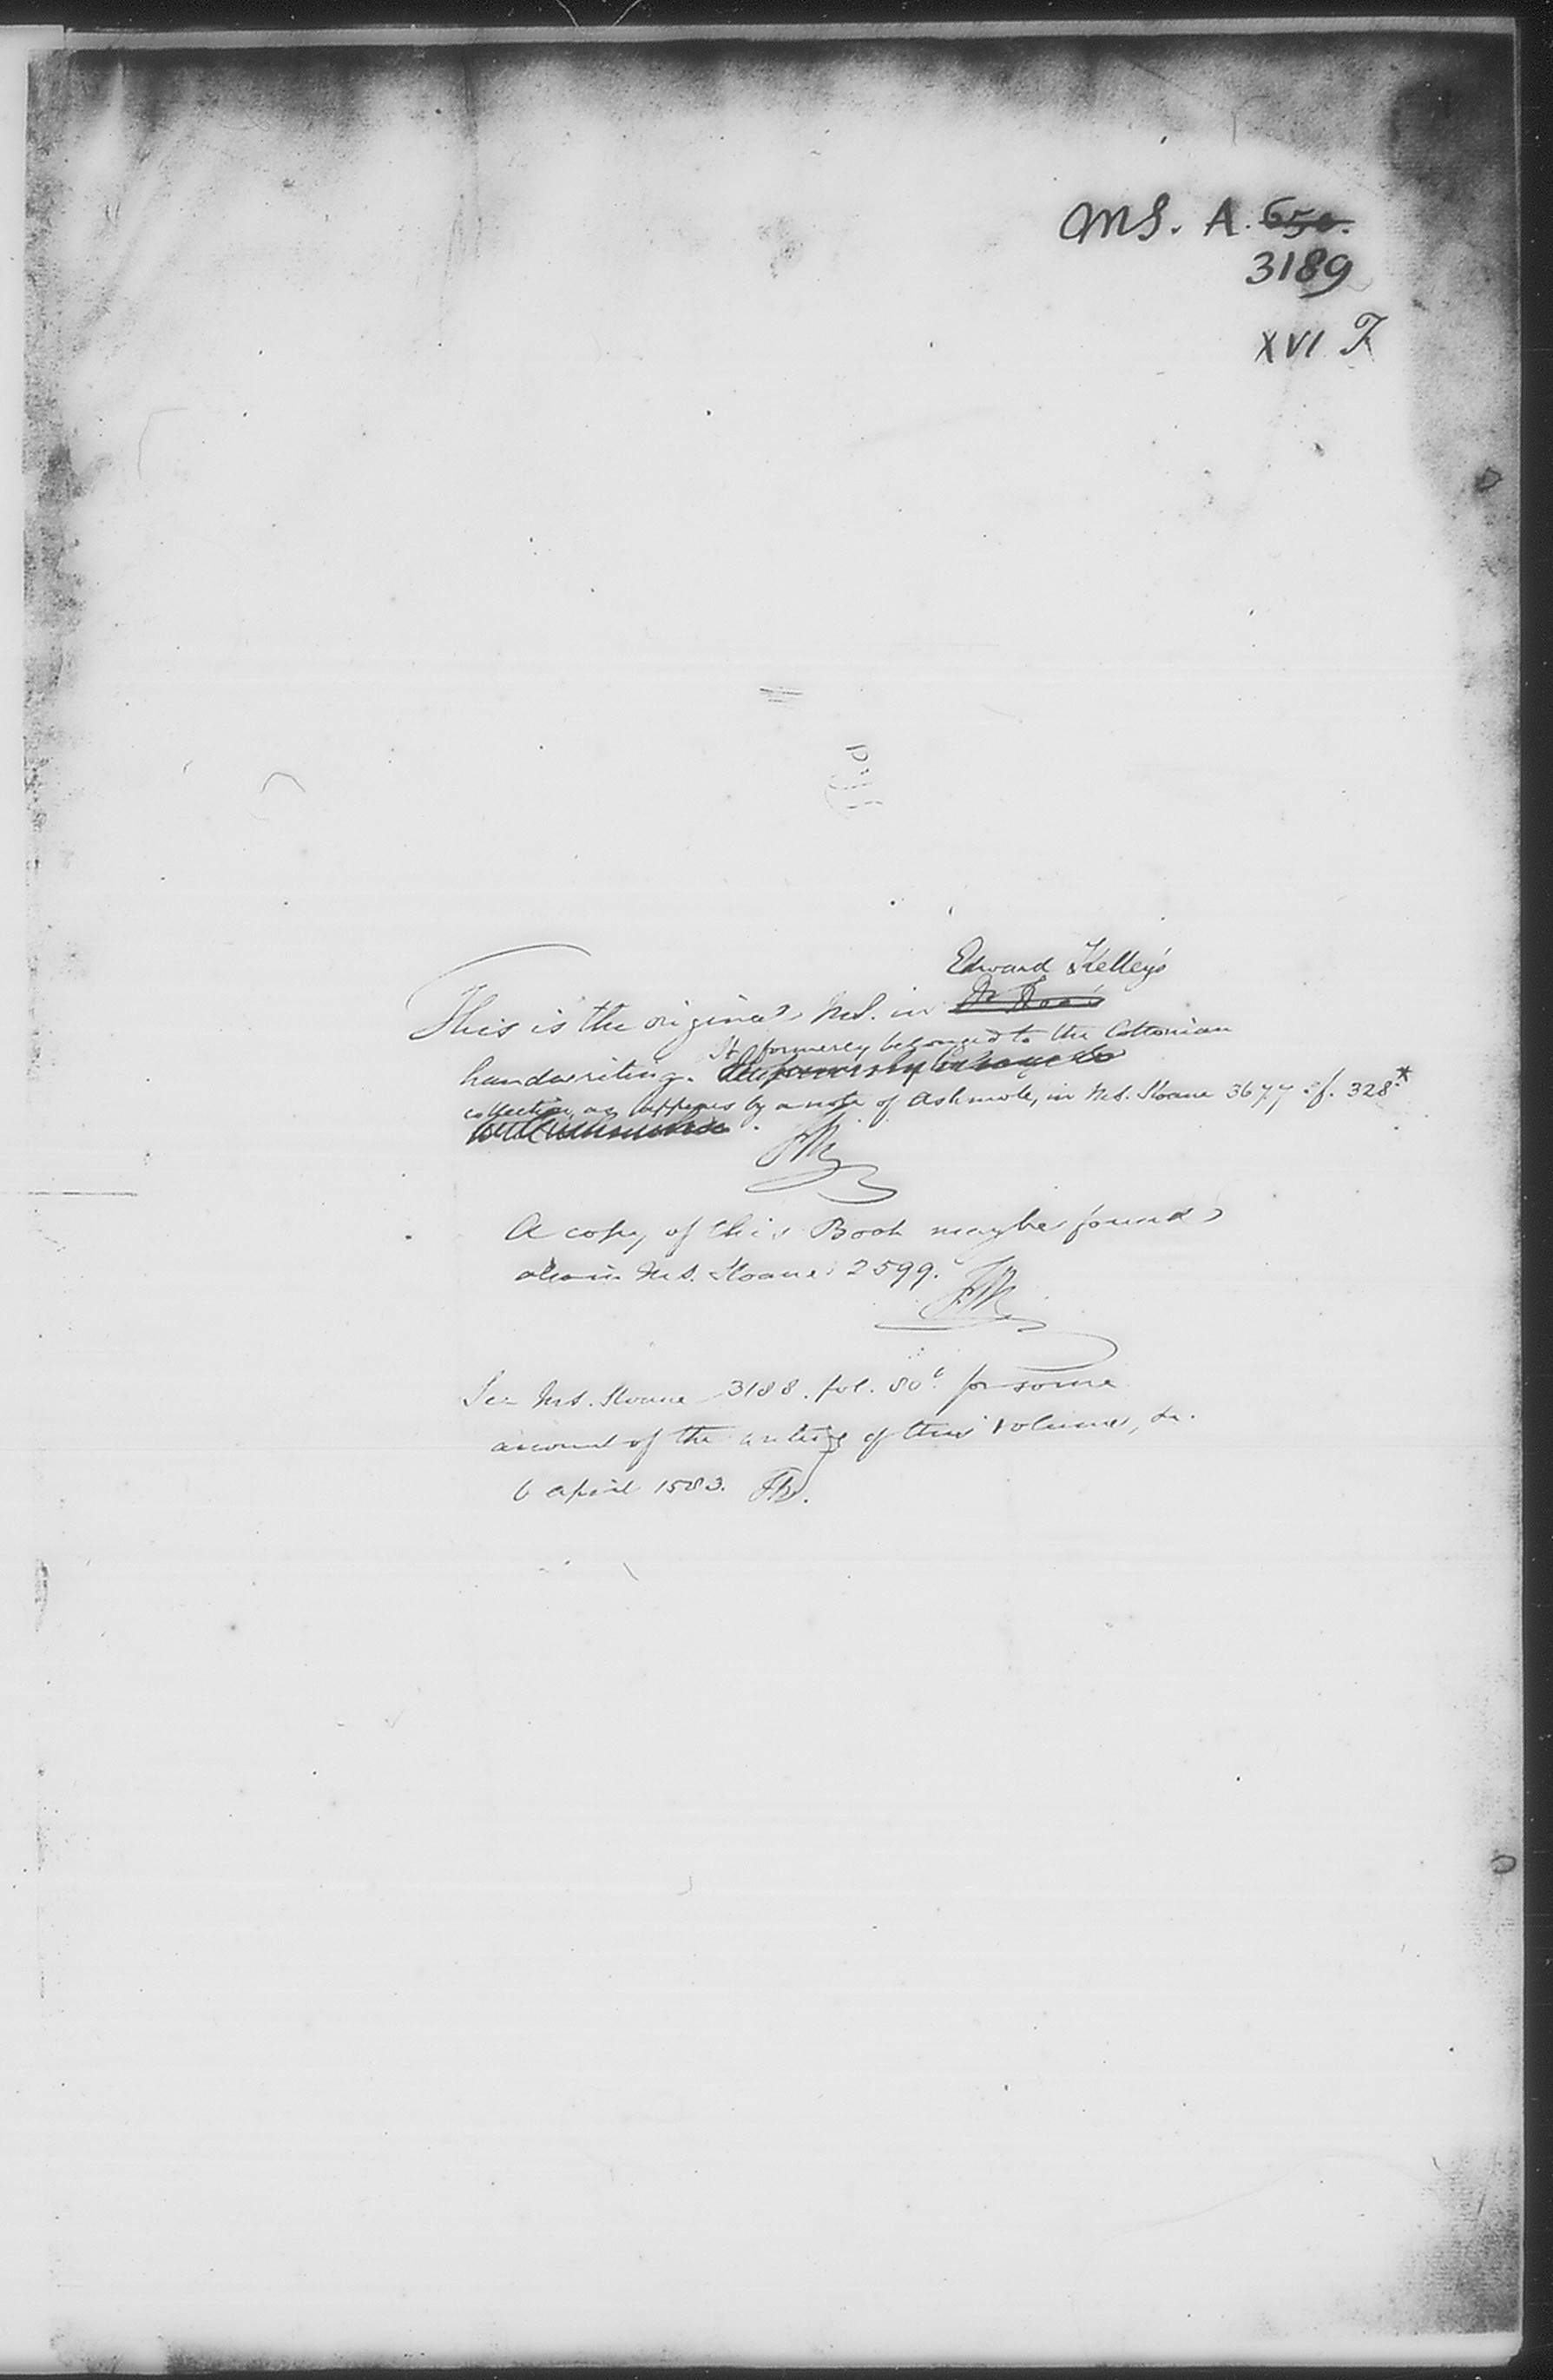 MS. A. 650.
3189
XVI F
Edward Kelley's
This is the original MS. in Dr Dee's
It formerly belonged to the Cottonian
handwriting.
collection, as appears by a note of Ashmole, in MS. Sloane 3677. f. 328*
A copy of this Book may be found
also in MS. Sloane 2599.
See MS. Sloane 3188. fol. 80b. for some
account of the writing of this volume, on
6 April 1583. FM.